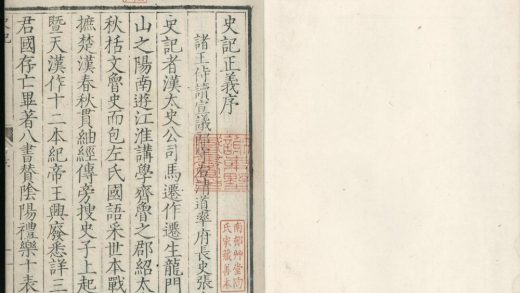 史記正義序
諸王侍讀宣議郎守右清道率府長史張
史記者漢太史公司馬遷作遷生龍門
山之陽南遊江淮講學齊魯之郡紹太
秋括文魯史而包左氏國語采世本戰
摭楚漢春秋貫紬經傳旁搜史子上起
暨天漢作十二本紀帝王興廢悉詳三
君國存亡畢著八書贊陰陽禮樂十表
南部艸堂陶
氏家藏善本